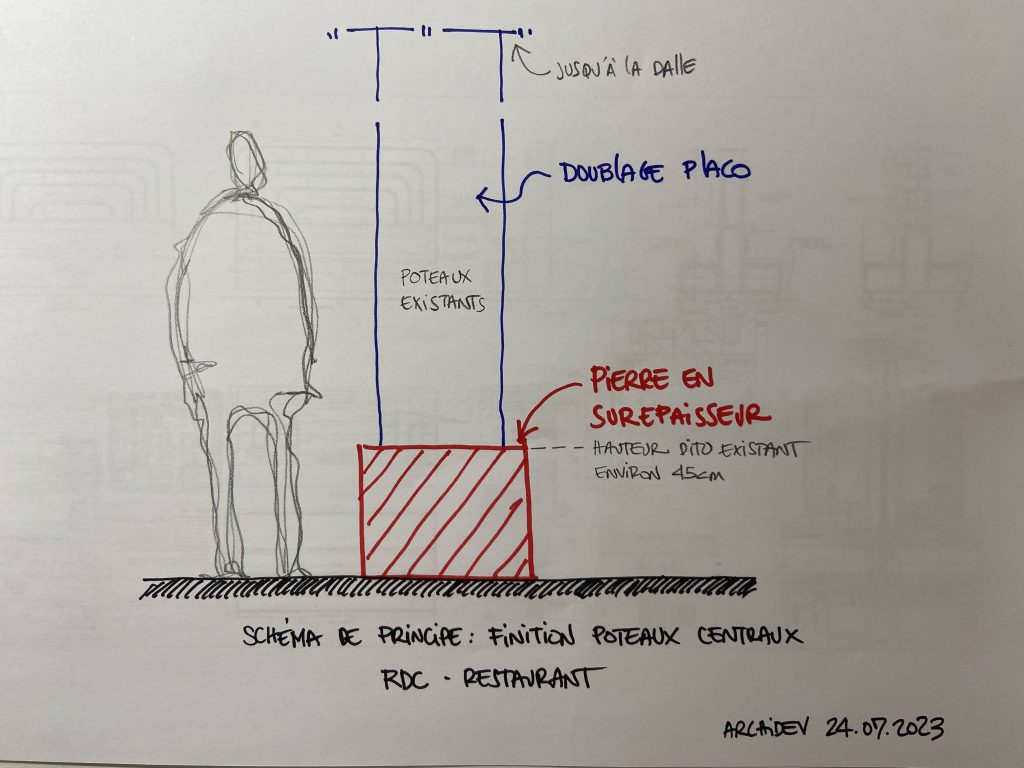 JUSQU'À LA DALLE
DOUBLAGE PLACO
POTEAUX
EXISTANTS
PIERRE EN
SUREPAISSEUR
HAUTEUR DITO EXISTANT
ENVIRON 45cm
SCHÉMA DE PRINCIPE : FINITION POTEAUX CENTRAUX
RDC - RESTAURANT
ARCHIDEV 24.07.2023